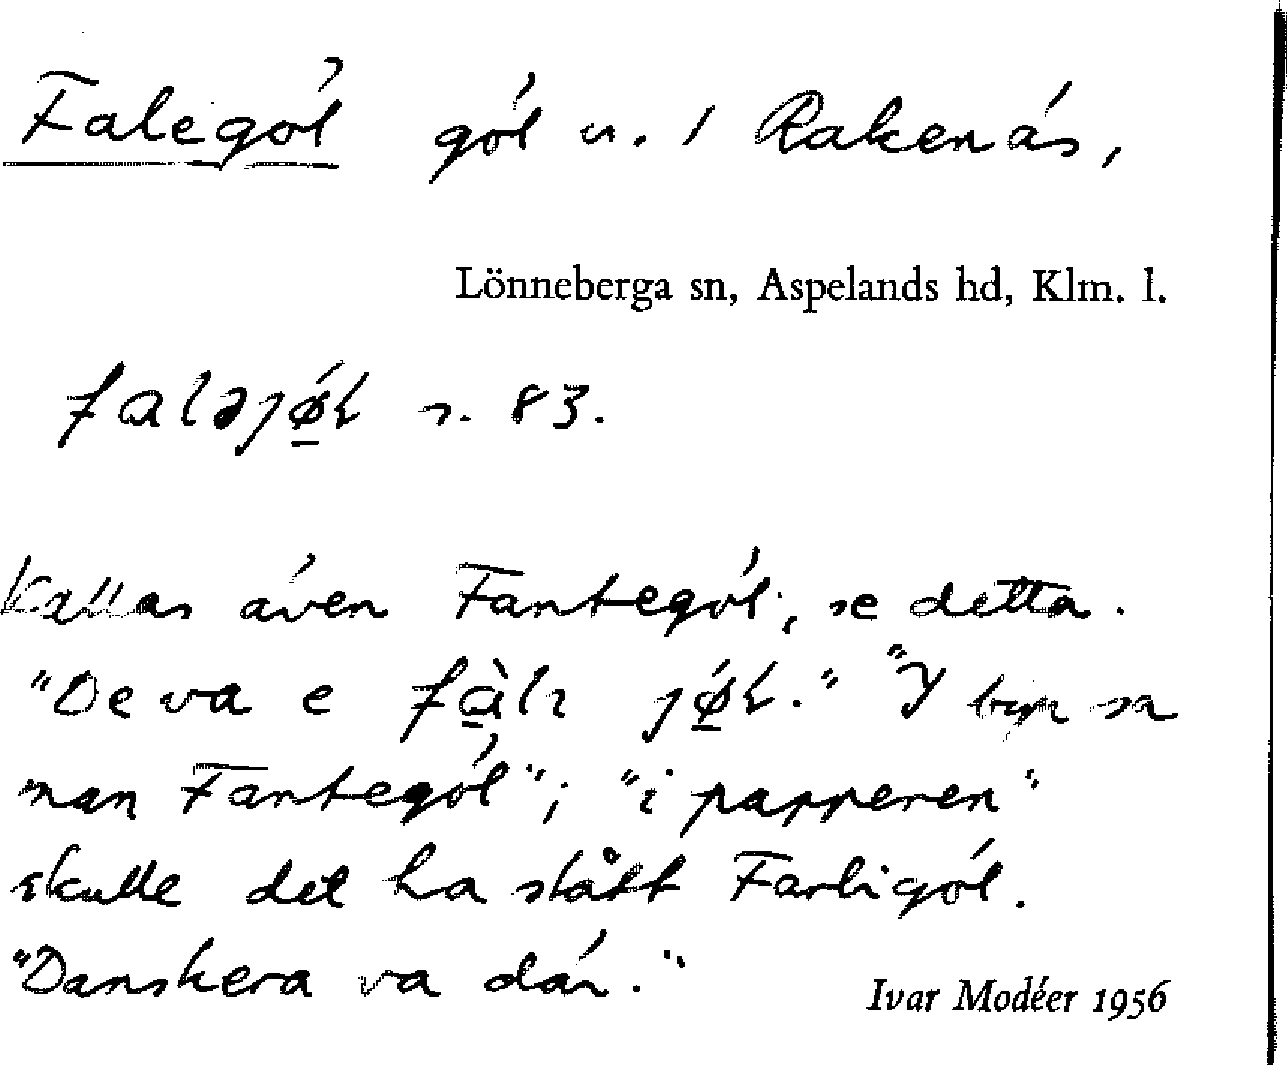 Falegöl göl n. / Rakenäs,
Lönneberga sn, Aspelands hd, Klm. l.
faləjǿ̲ɫ s. 83.
Kallas även Fantegöl, se detta.
"De va e fà̲lı jǿ̲ɫ." "I byn sa
man Fantegöl"; "i papperen"
skulle det ha stått Farligöl.
"Danskera va där."
Ivar Modéer 1956